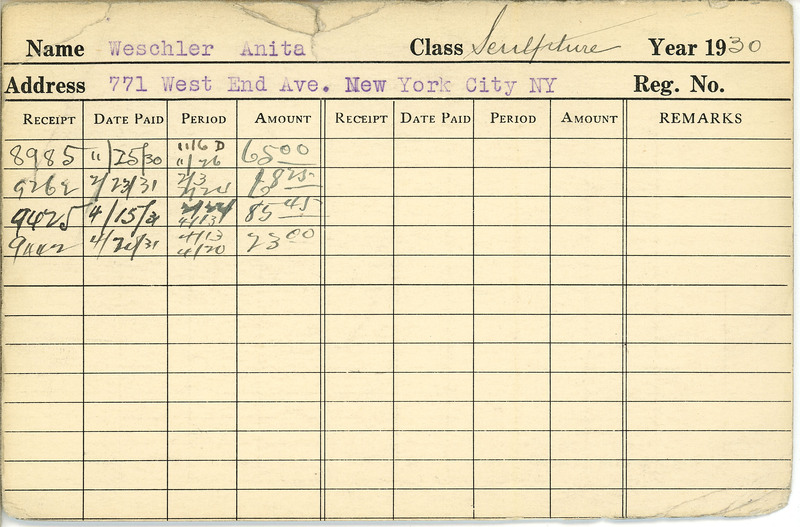 Name Weschler Anita Class Sculpture Year 1930
Address 771 West End Ave. New York City NY Reg. No.
RECEIPT DATE PAID PERIOD AMOUNT RECEIPT DATE PAID PERIOD AMOUNT REMARKS
8985 11/25/30 11/6 D 11/26 65 00
9262 2/23/31 2/3
9425 4/15/31 4/13 85 45
31 4/13 4/20 23 00